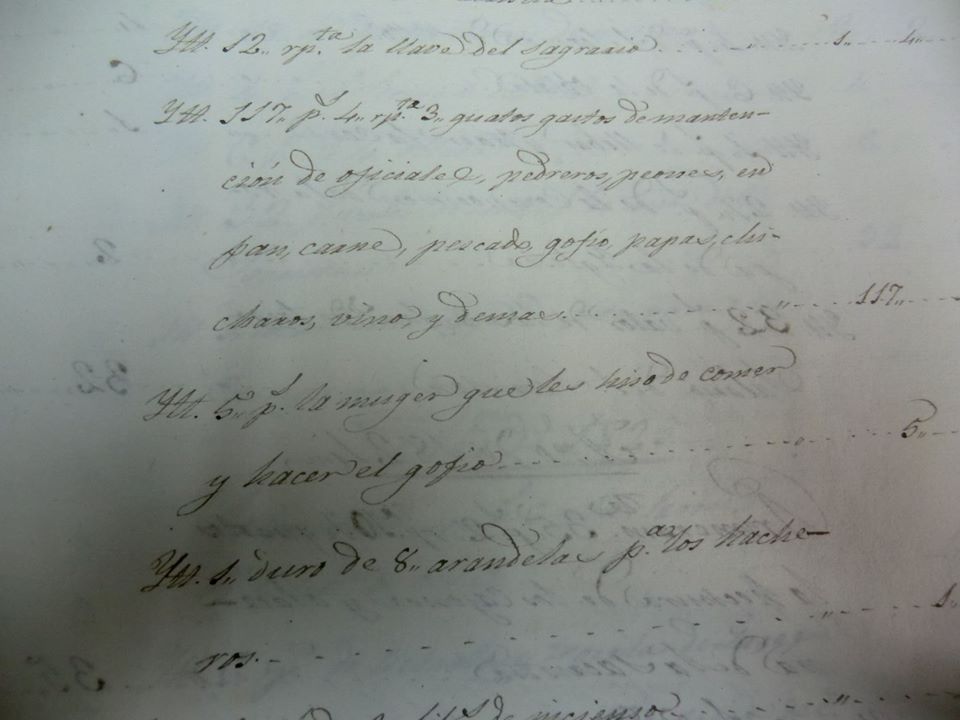 Ytt. 12,, rp.ta la llave del sagrario . . . . . . . . 1,, . . . . 4,,
Ytt. 117,, p.s 4,, rp.ta 3,, quatos gastos de manten-
ción de oficiales, pedreros, peones, en
pan, carne, pescado, gofio, papas, chi-
charos, vino, y demas. . . . . . . . . . . . . 117,,
Ytt. 5,, p.s la muger que les hiso de comer
y hacer el gofio . . . . . . . . . . . . . . . 5,,
Ytt. 1,, duro de 8,, arandelas p.a los hache-
ros. - - - - - - - - - - - - - - - 1,,
de incienso